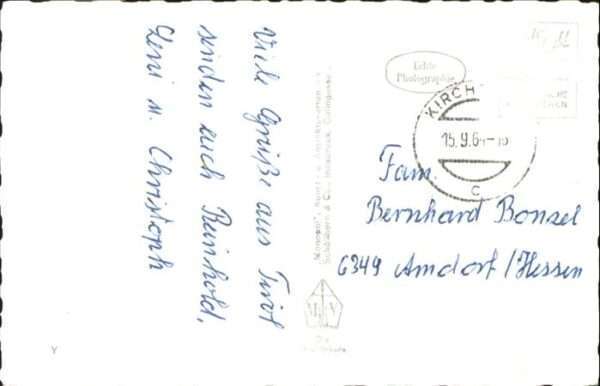 Viele Grüße aus Tirol
senden euch Reinhold,
Leni u. Christoph
Echte
Photographie
KIRCH
15.9.64-15
c
Fam.
Bernhard Bonzel
6349 Amdorf/Hessen
"Monopol",
Schöllhorn & Co., Innsbruck,
M V
Y